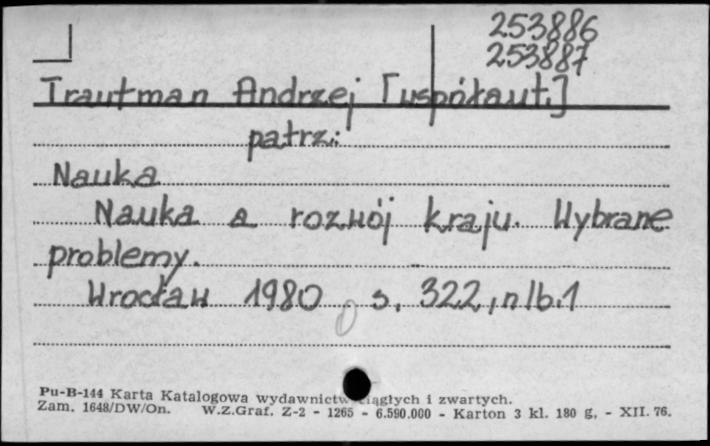 253886
253887
Trautman Andrzej [współaut.]
patrz:
Nauka
Nauka a rozwój kraju. Wybrane
problemy.
Wrocław 1980 s. 322, nlb. 1
Pu-B-144 Karta Katalogowa wydawnictw ciągłych i zwartych.
Zam. 1648/DW/On. W.Z.Graf. Z-2 - 1265 - 6.590.000 - Karton 3 kl. 180 g. - XII. 76.